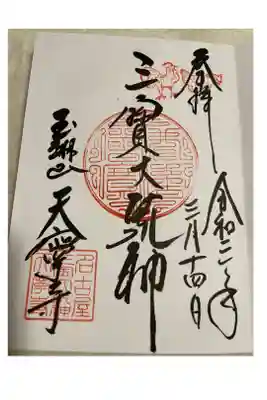 奉拝
令和二年
三月十四日
三寳大荒神
天寧寺
名古屋